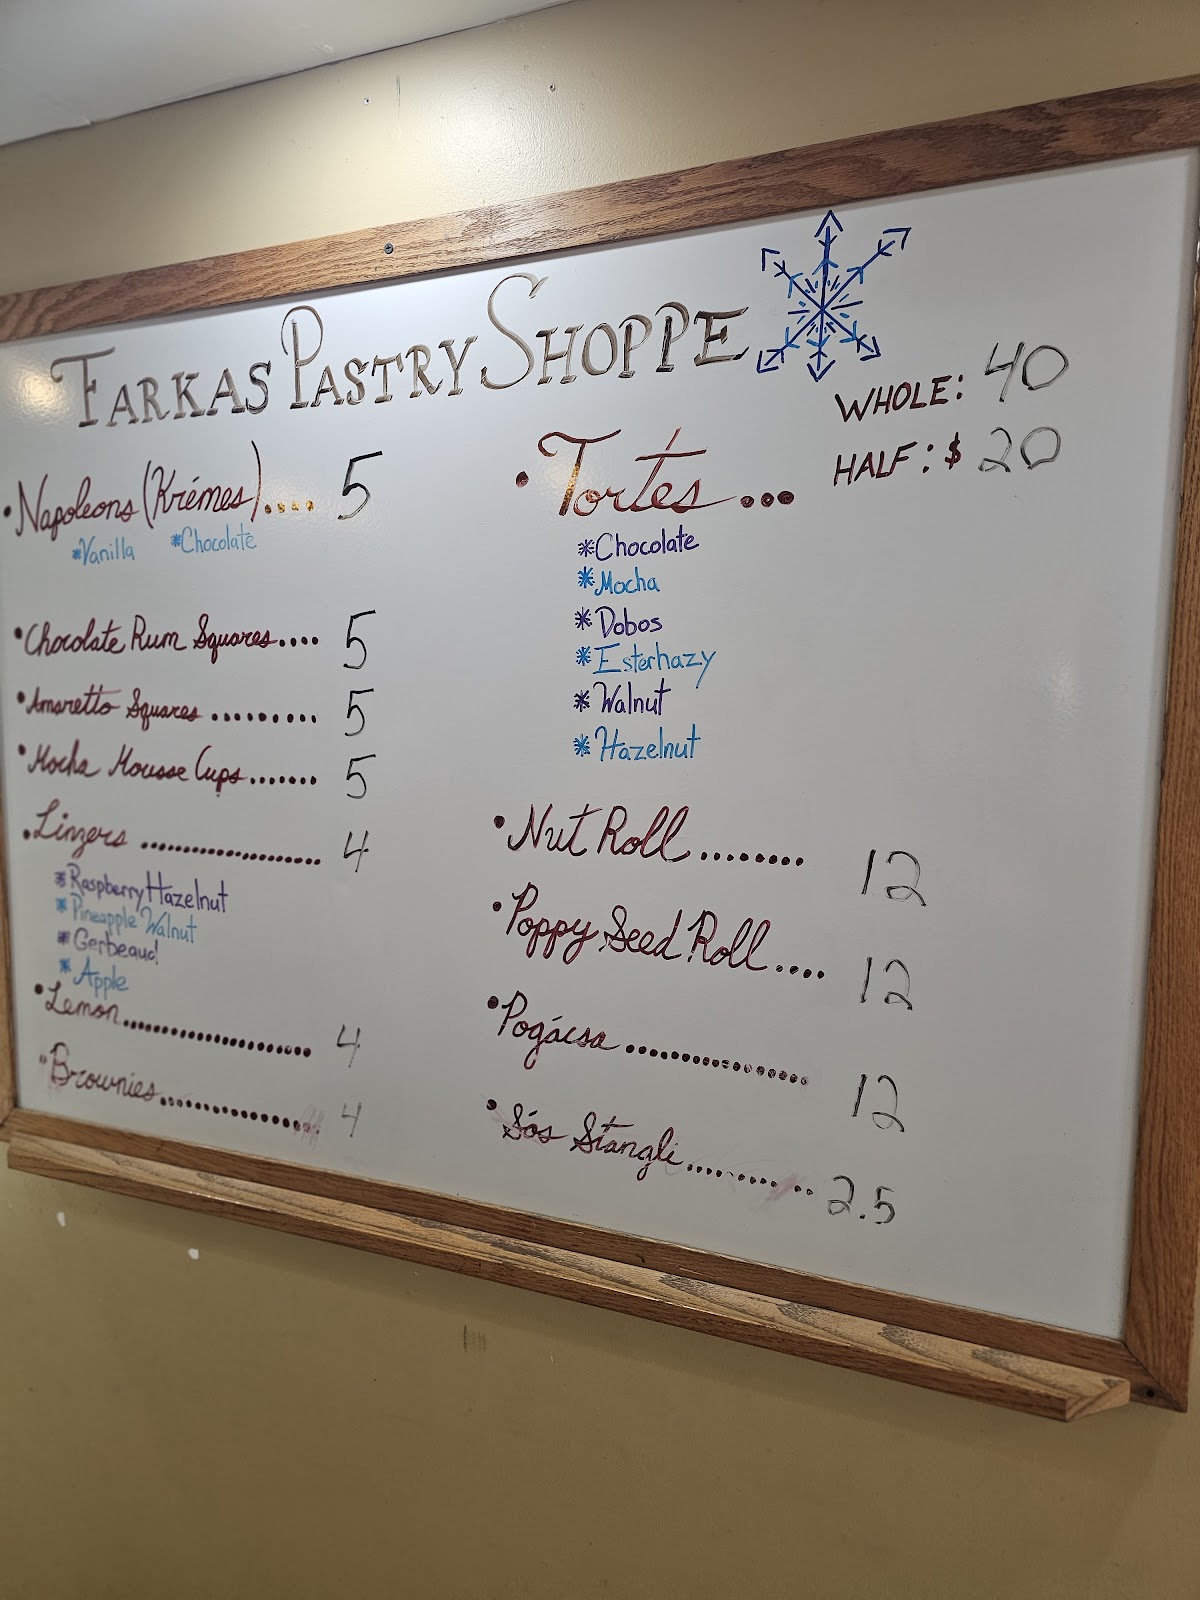 FARKAS PASTRY SHOPPE
• Napoleons (Krémes).... 5
*Vanilla *Chocolate
• Chocolate Rum Squares.... 5
• Amaretto Squares ......... 5
• Mocha Mousse Cups....... 5
• Linzers ...................... 4
*Raspberry Hazelnut
*Pineapple Walnut
*Gerbeaud
*Apple
• Lemon...................... 4
• Brownies.................. 4
• Tortes ...
WHOLE: 40
HALF: $ 20
*Chocolate
*Mocha
*Dobos
*Esterhazy
*Walnut
*Hazelnut
• Nut Roll ........ 12
• Poppy Seed Roll .... 12
• Pogácsa ................. 12
• Sós Stangli ........... 2.5